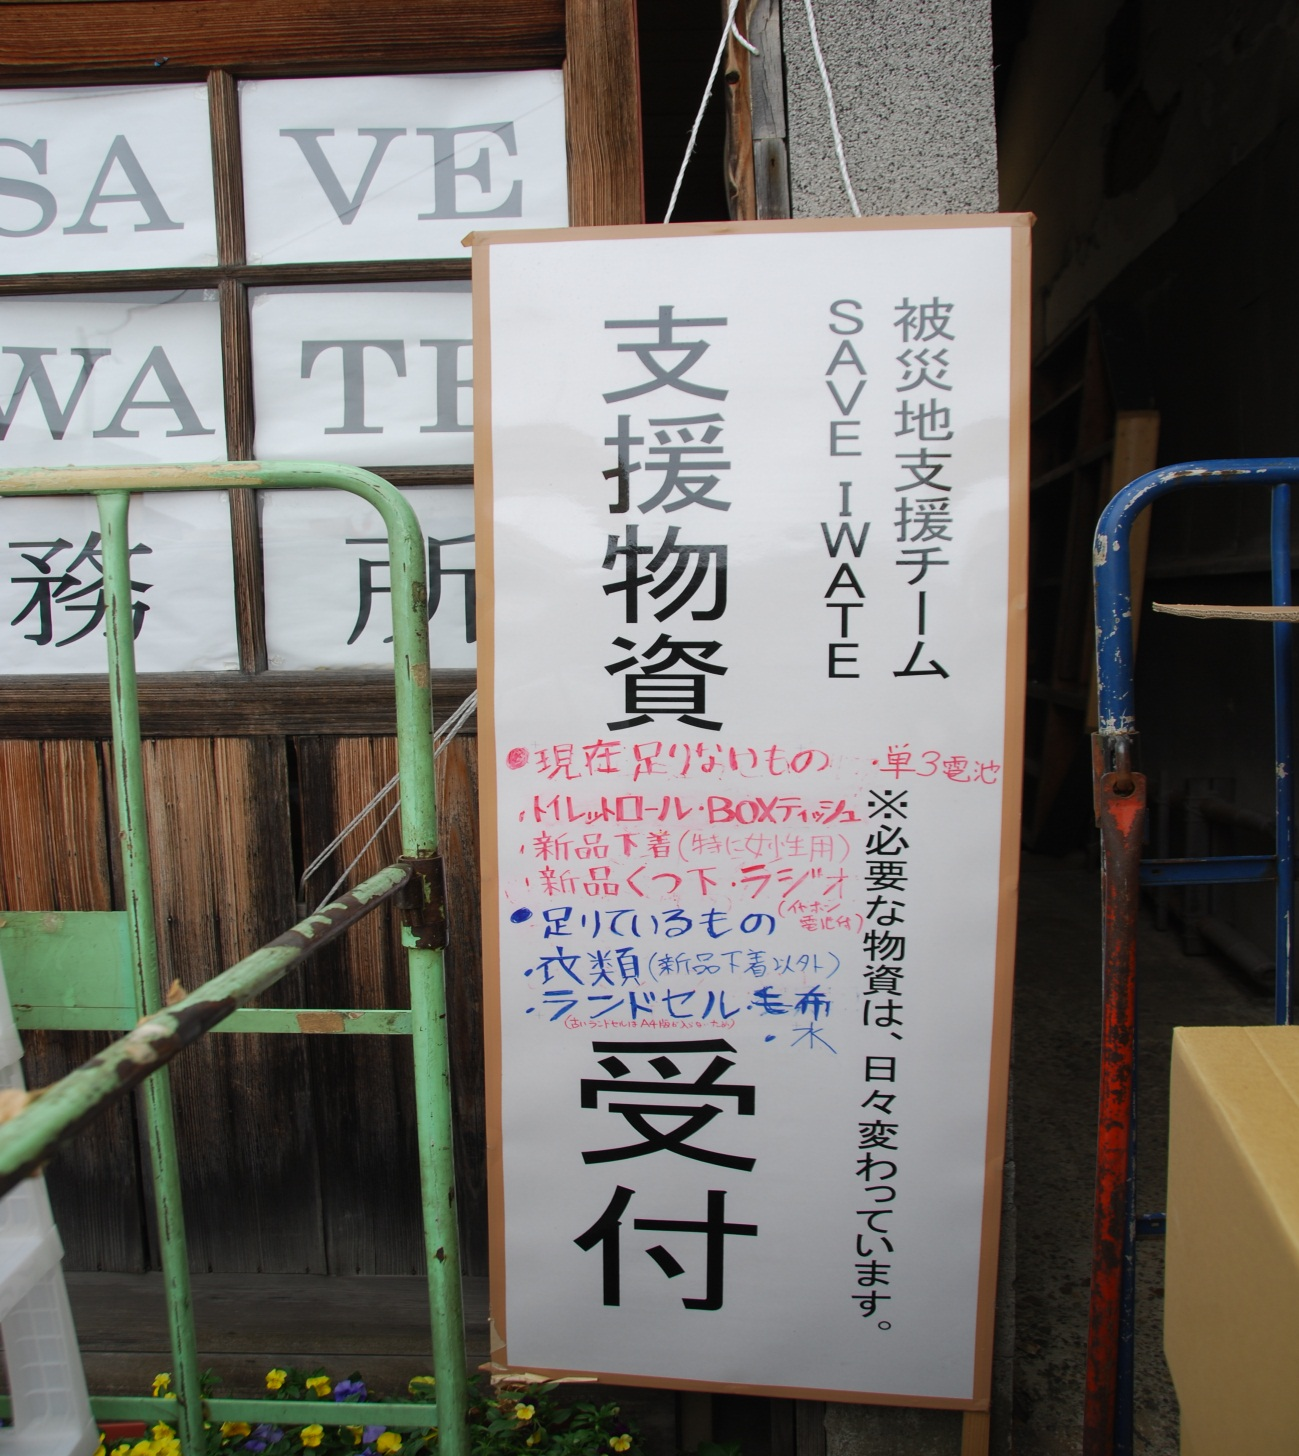 SA VE
WA TE
務 所
被災地支援チーム
SAVE IWATE
支援物資
●現在足りないもの ・単3電池
・トイレットロール・BOXティッシュ
・新品下着(特に女性用)
・新品くつ下・ラジオ
(イヤホン
電池付)
●足りているもの
・衣類(新品下着以外)
・ランドセル・毛布
(古いランドセルはA4版が入らないため)
・水
受付
※必要な物資は、日々変わっています。